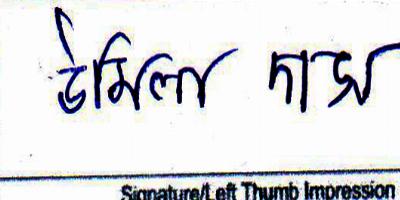 উর্মিলা দাস
Signature/Left Thumb Impression